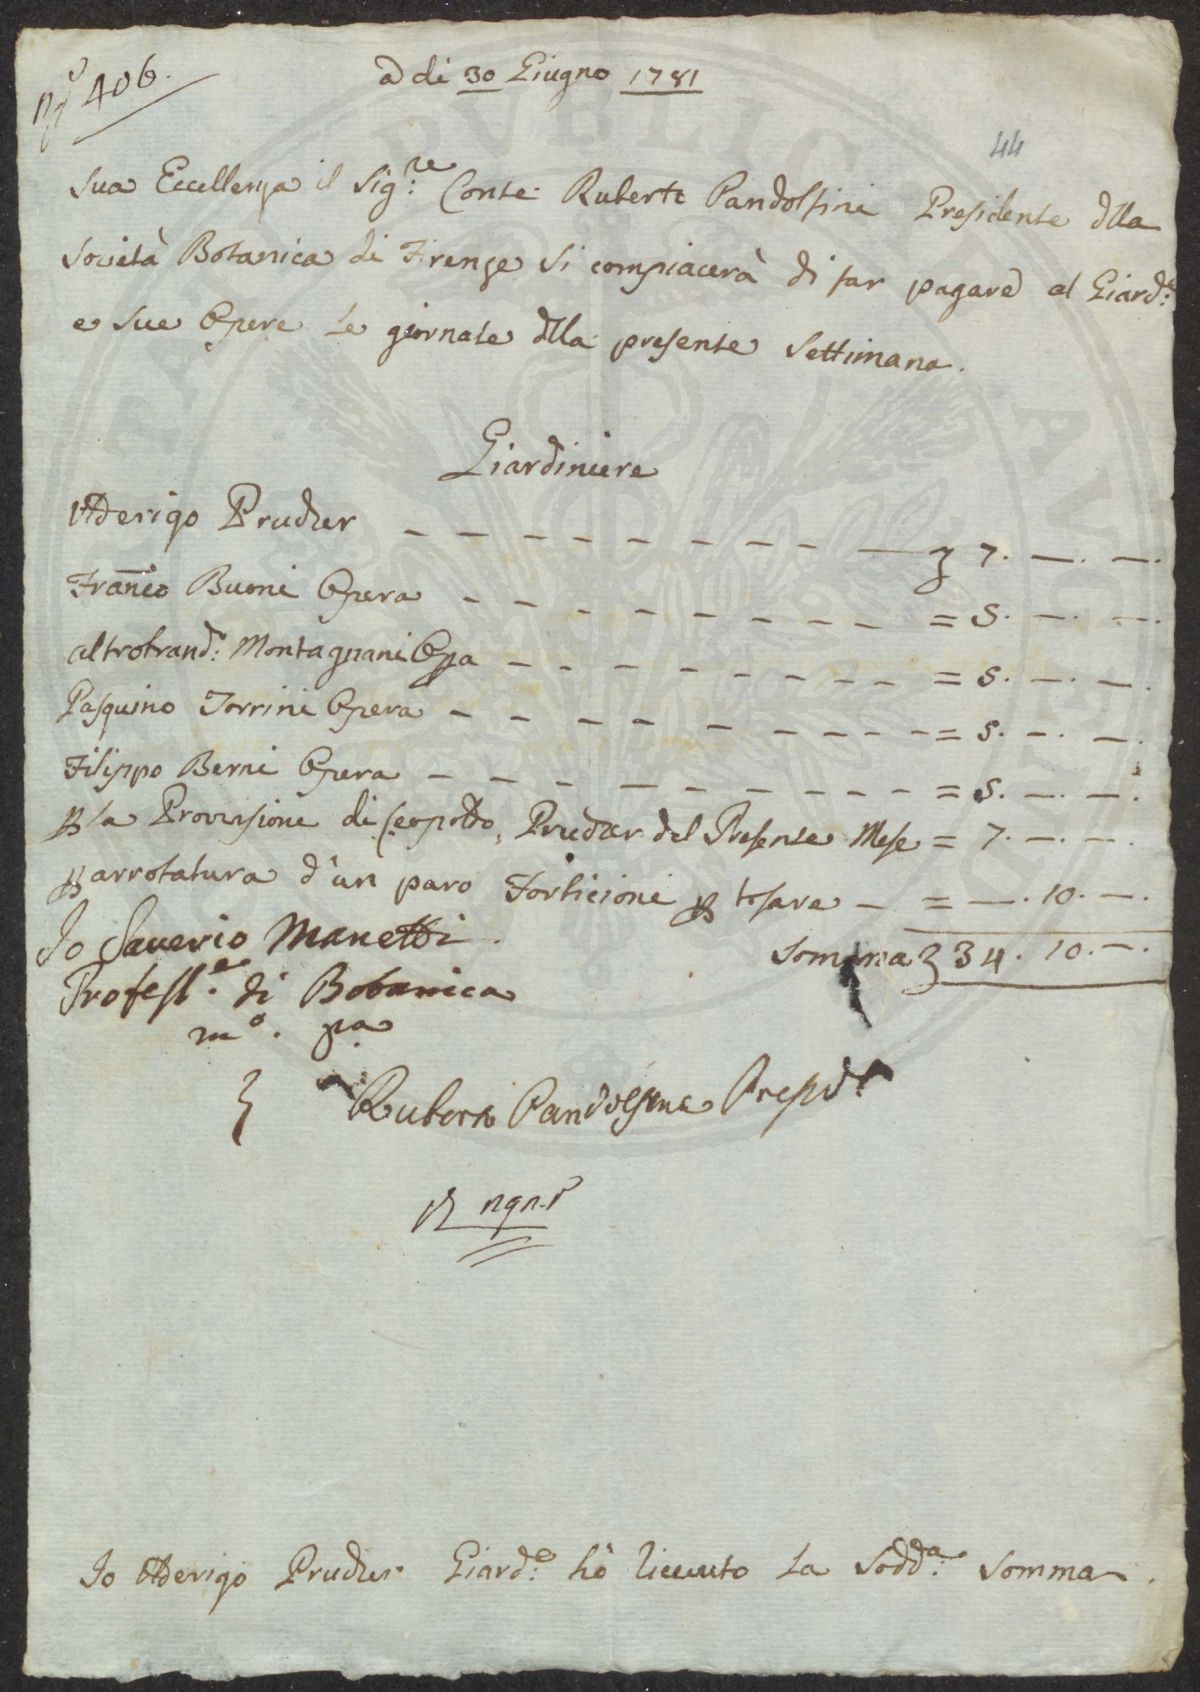 N.º 406.
A di 30 Giugno 1781
44
Sua Eccellenza il Sig.re Conte Ruberto Pandolfini Presidente dlla
Società Botanica di Firenze si compiacerà di far pagare al Giard.e
e sue Opere le giornate dlla presente Settimana.
Giardiniere
Aderigo Prucher — 7. —. —.
Franco Buoni Opera = 5. —. —.
altrobrand: Montagnani Opa = 5. —. —.
Pasquino Torrini Opera = 5. —. —.
Filippo Berni Opera = 5. —. —.
p la Provisione di Leopoldo Prucher del Presente Mese = 7. —. —.
p arrotatura d'un paro Forbicioni p tosare = —. 10. —.
Somma 34. 10. —.
Io Saverio Manetti
Profess.e di Botanica
m.o pa
Ruberto Pandolfini Presid.e
Io Aderigo Prucher Giard.e hò riceuto la Sodd.a Somma.